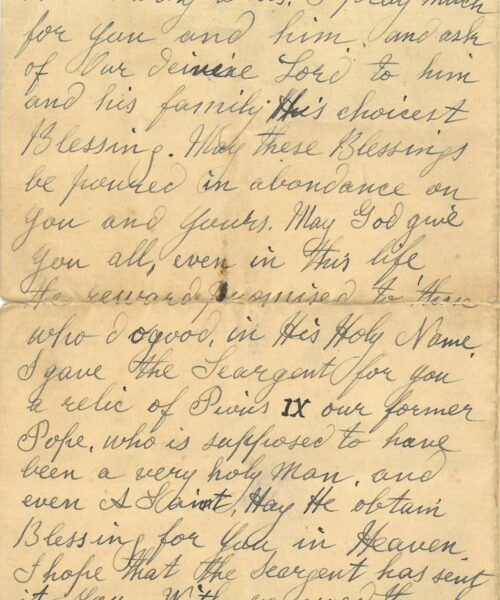 I pray much
for you and him. and ask
of Our deivine Lord to him
and his family His choicest
Blessing. May these Blessings
be poured in abondance on
you and yours. May God give
you all, even in this life
the reward promised to them
who do good, in His Holy Name.
I gave the Seargent for you
a relic of Pivus IX our former
Pope, who is supposed to have
been a very holy Man, and
even A Saint, May He obtain
Blessing for you in Heaven.
I hope that the seargent has sent
it you. With